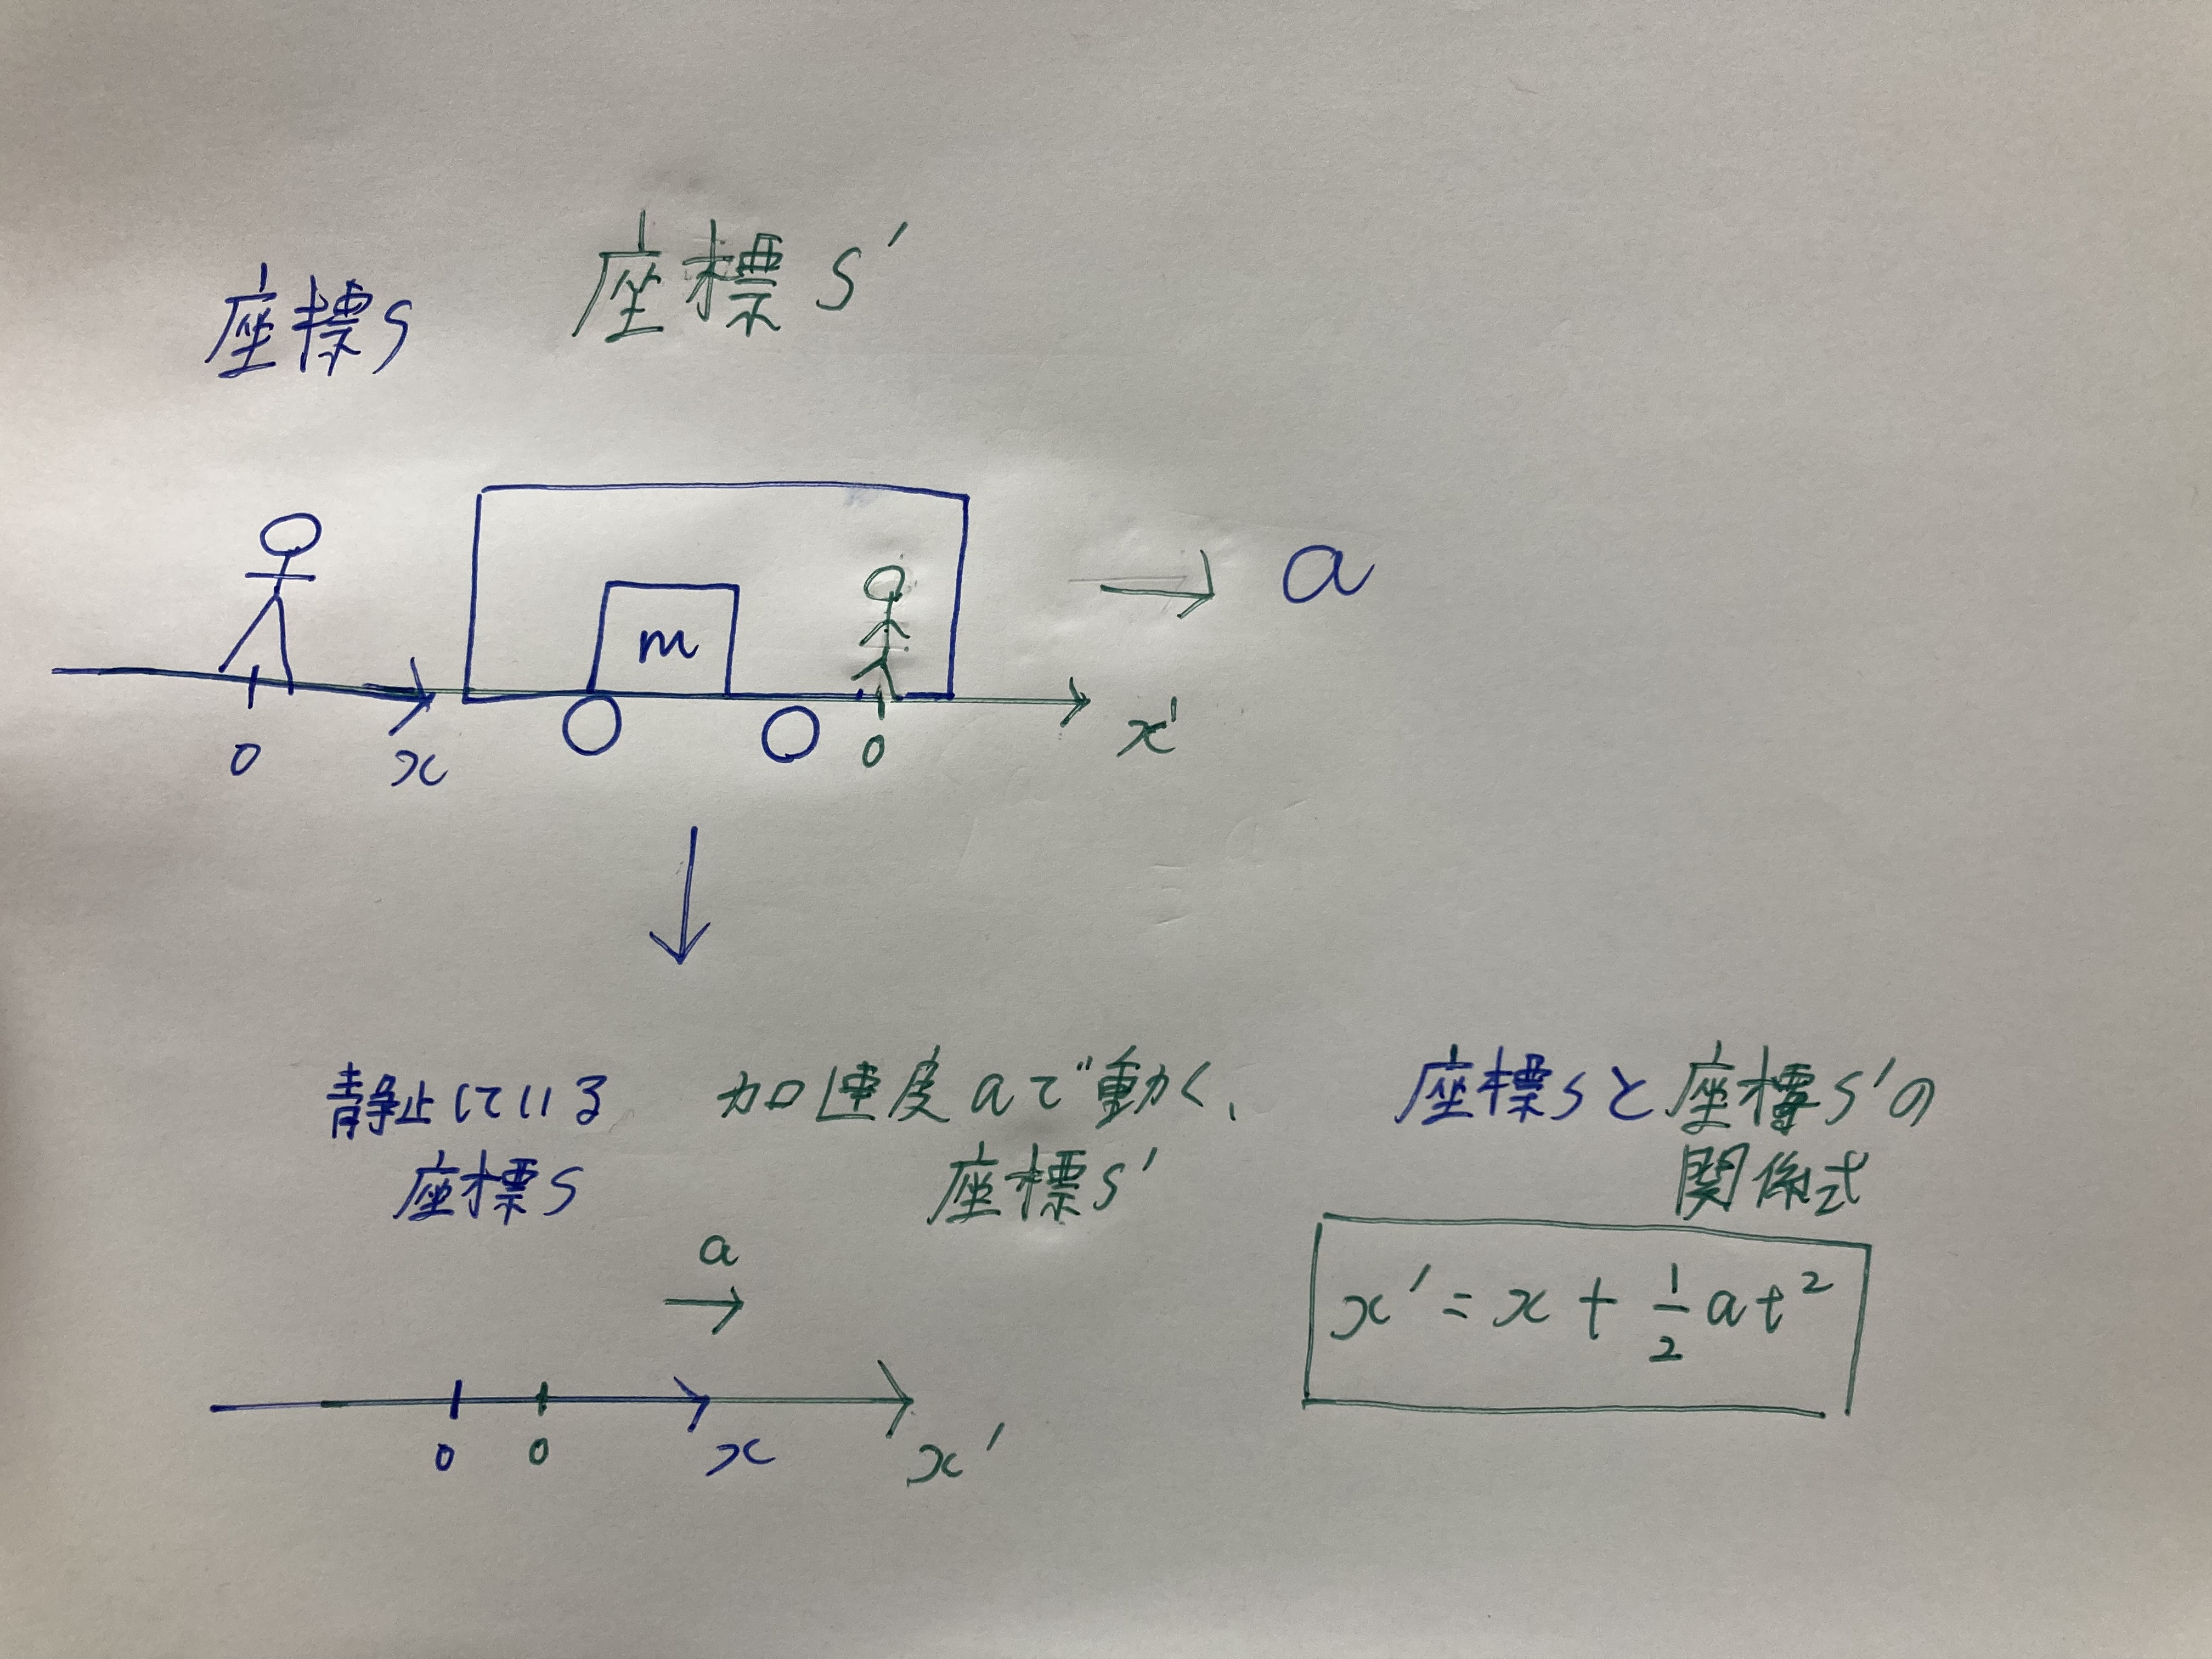 座標S
座標S'
m
a
0
x
0
x'
静止している
座標S
加速度aで動く、
座標S'
a
0
0
x
x'
座標Sと座標S'の
関係式
x' = x + 1/2 at²